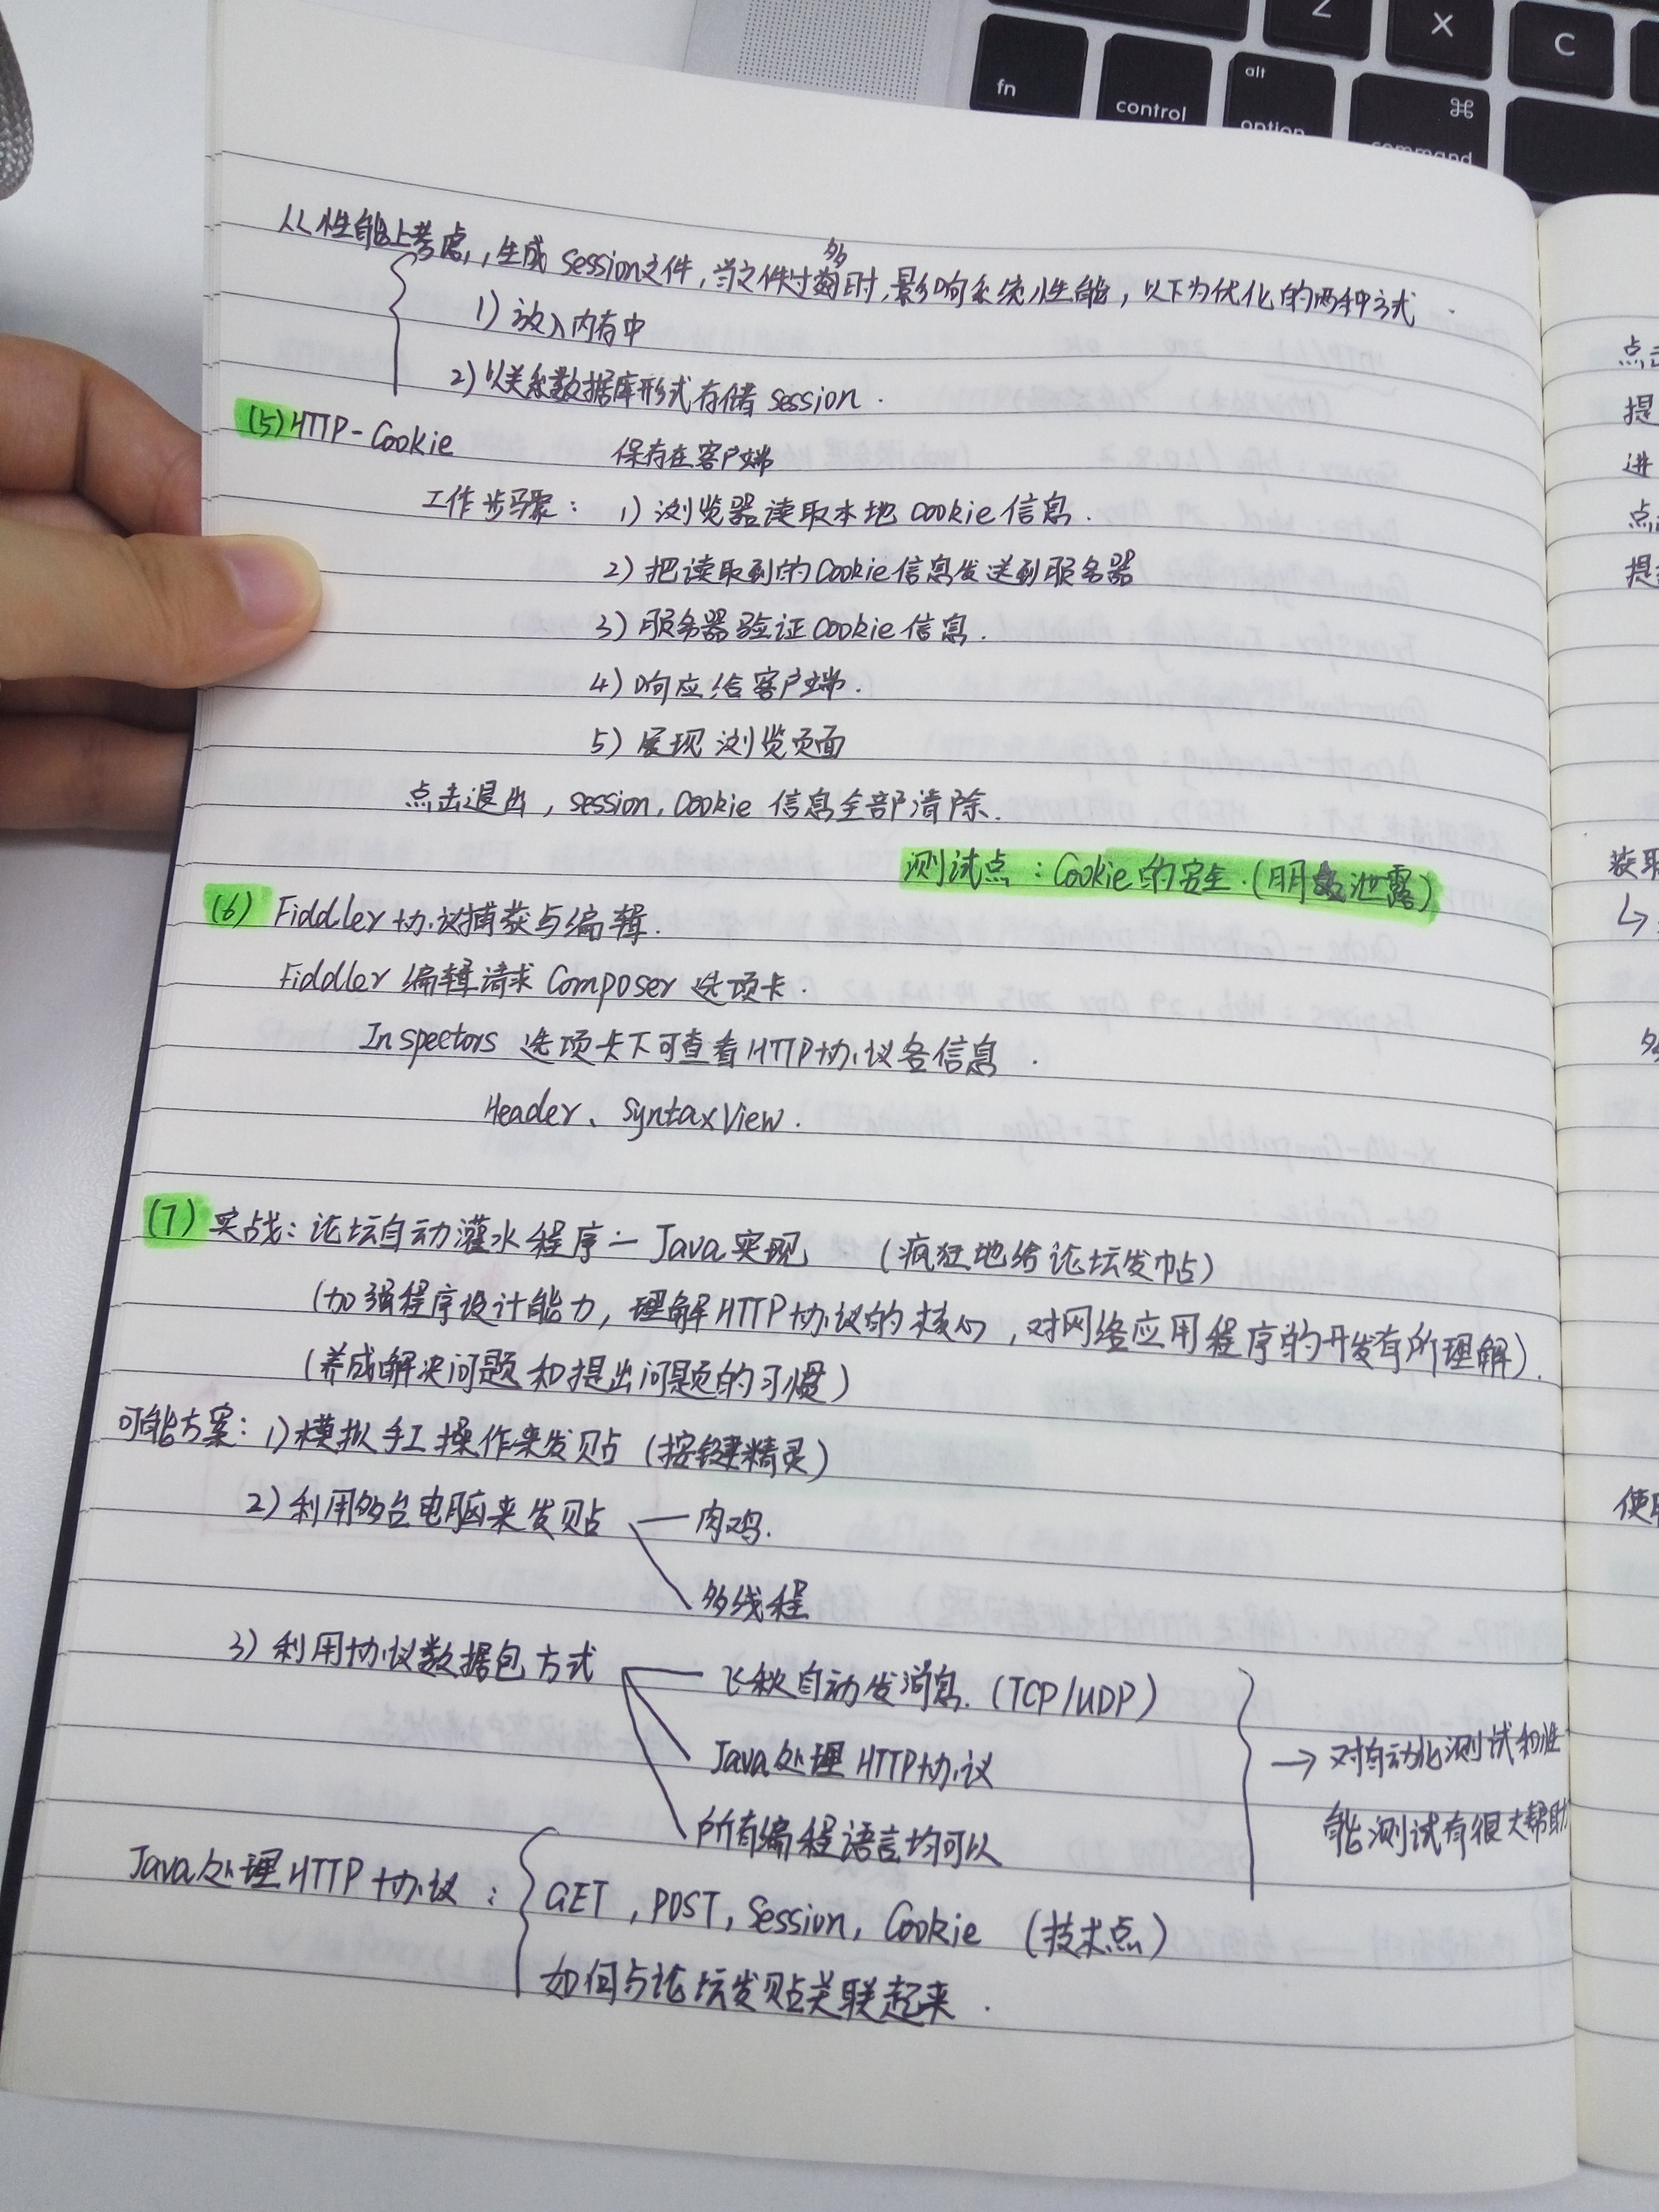 Z
X
C
fn
control
alt
option
⌘
command
从性能上考虑,生成session文件,当文件过多时,影响系统性能,以下为优化的两种方式.
1) 放入内存中
2) 以关系数据库形式存储session.
(5) HTTP-Cookie 保存在客户端
工作步骤: 1) 浏览器读取本地cookie信息.
2) 把读取到的Cookie信息发送到服务器
3) 服务器验证Cookie信息.
4) 响应给客户端.
5) 展现浏览页面
点击退出,session,Cookie信息全部清除.
测试点:Cookie的安全.(用户泄露)
(6) Fiddler协议捕获与编辑.
Fiddler编辑请求Composer选项卡.
Inspectors选项卡下可查看HTTP协议各信息.
Header、SyntaxView.
(7) 实战:论坛自动灌水程序—Java实现 (疯狂地给论坛发帖)
(加强程序设计能力,理解HTTP协议的核心,对网络应用程序的开发有所理解).
(养成解决问题和提出问题的习惯)
可能方案: 1) 模拟手工操作来发贴 (按键精灵)
2) 利用多台电脑来发贴 — 肉鸡.
多线程
3) 利用协议数据包方式 飞秋自动发消息.(TCP/UDP)
Java处理HTTP协议
→ 对自动化测试和性
能测试有很大帮助
所有编程语言均可以
Java处理HTTP协议: GET,POST,Session,Cookie (技术点)
如何与论坛发贴关联起来.
点击
提
进
提
获取
使用